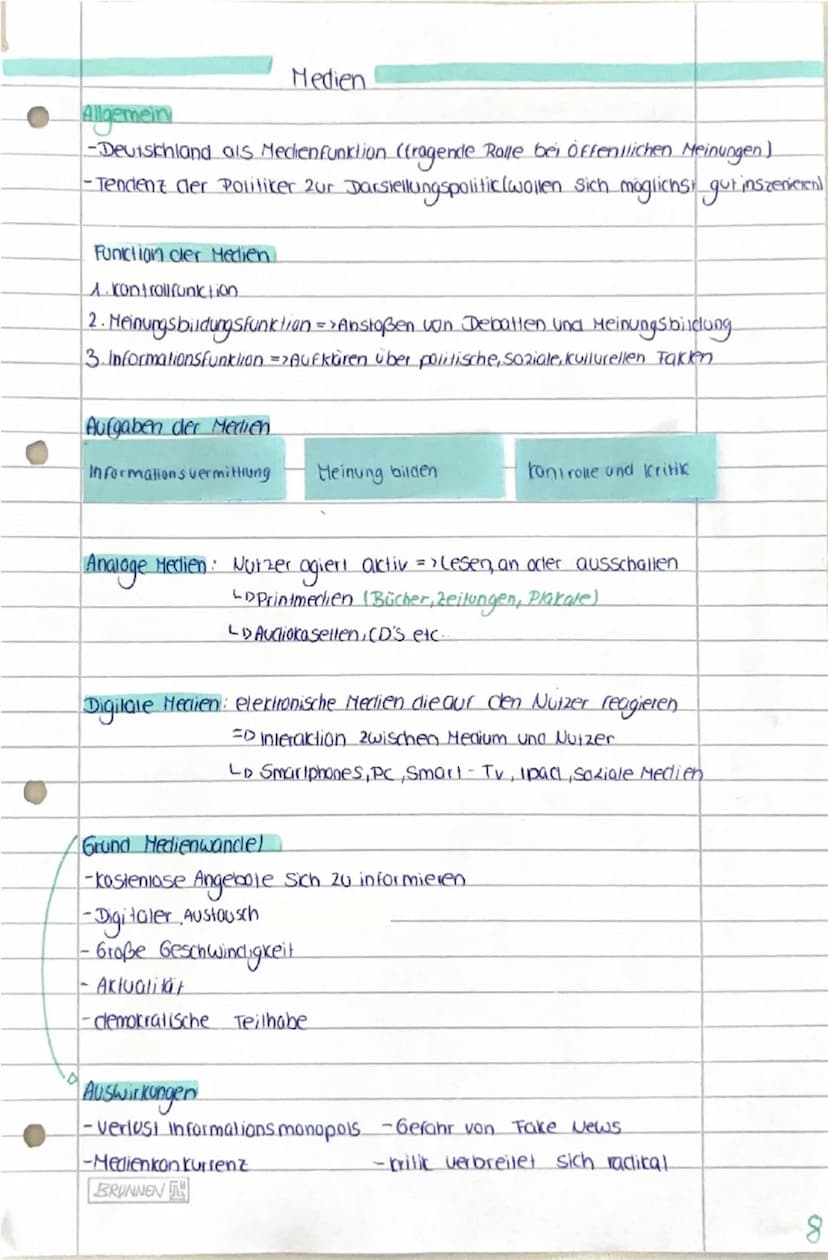 Medien
Allgemein
-Deutschland als Medienfunktion (tragende Rolle bei Öffentlichen Meinungen)
-Tendenz der Politiker zur Darstellungspolitik (wollen sich möglichst gut inszenieren)
Funktion der Medien
1. Kontrollfunktion
2. Meinungsbildungsfunktion => Anstoßen von Debatten und Meinungsbildung
3. Informationsfunktion => Aufklären über politische, soziale, kulturellen Fakten
Aufgaben der Medien
Informationsvermittlung Meinung bilden Kontrolle und Kritik
Analoge Medien: Nutzer agiert aktiv => Lesen, an oder ausschalten
↳ Printmedien (Bücher, Zeitungen, Plakate)
↳ Audiokasetten, CD's etc.
Digitale Medien: elektronische Medien die auf den Nutzer reagieren
=> Interaktion zwischen Medium und Nutzer
↳ Smartphones, PC, Smart-Tv, Ipad, soziale Medien
Grund Medienwandel
-kostenlose Angebote sich zu informieren
-Digitaler Austausch
- Große Geschwindigkeit
- Aktualität
-demokratische Teilhabe
Auswirkungen
-Verlust Informationsmonopols -Gefahr von Fake News
-Medienkonkurrenz -Kritik verbreitet sich radikal
BRUNNEN
8